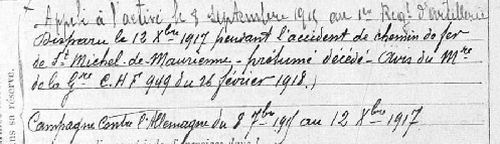 Appelé à l'activité le 8 septembre 1915 au 1er Régt d'artillerie
Disparu le 12 Xbre 1917 pendant l'accident de chemin de fer
de St Michel-de-Maurienne - présumé décédé - Avis du Mre
de la Gre C.H.F 949 du 26 février 1918.
Campagne contre l'Allemagne du 8 7bre 1915 au 12 Xbre 1917
ns sa réserve.